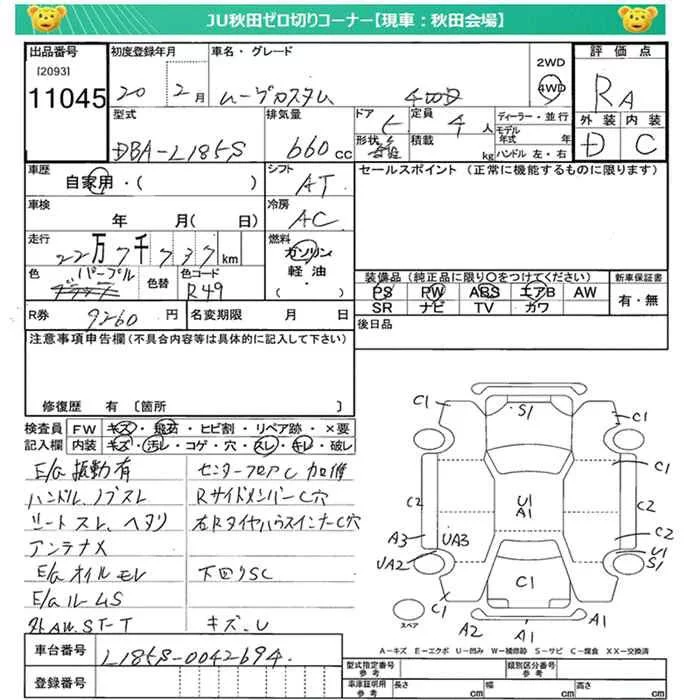 JU秋田ゼロ切りコーナー【現車：秋田会場】
出品番号 初度登録年月 車名・グレード 2WD 4WD 評価点
[2093]
11045 20 2月 ムーブカスタム 4WD RA
型式 排気量 ドア 定員 ディーラー・並行 外装 内装
DBA-L185S 660cc 5 4人 D C
形状 積載 kg モデル年式 年 ハンドル 左・右
車歴 シフト セールスポイント（正常に機能するものに限ります）
自家用・( ) AT
車検 冷房
年 月(日) AC
走行 燃料
22万7千737km ガソリン
軽油
( )
色 パープル 色替 色コード R49
装備品（純正品に限り○をつけてください） 新車保証書
PS PW ABS エアB AW 有・無
SR ナビ TV カワ
R券 9260円 名変期限 月 日 後日品
注意事項申告欄（不具合内容等は具体的に記入して下さい）
修復歴 有〔箇所 〕
検査員 FW キズ・飛石・ヒビ割・リペア跡・×要
記入欄 内装 キズ・汚レ・コゲ・穴・スレ・キレ・破レ
E/G振動有 センターフロアC加修
ハンドル、ノブスレ RサイドメンバーC穴
シートスレ、ヘタリ 左RタイヤハウスインナーC穴
アンテナX
E/Gオイルモレ 下回りSC
E/GルームS
外AW.ST-T キズ、U
車台番号 L185S-0042694
登録番号
C1 S1 C1
C1
C2 U1 A1 C2
A3 UA3 C2
UA2 C1 U1 S1
C1
スペア A2 A1 A2
A-キズ E-エクボ U-凹み W-補修跡 S-サビ C-腐食 XX-交換済
型式指定番号 参考 類別区分番号 参考
車庫証明用 参考 長さ cm 幅 cm 高さ cm